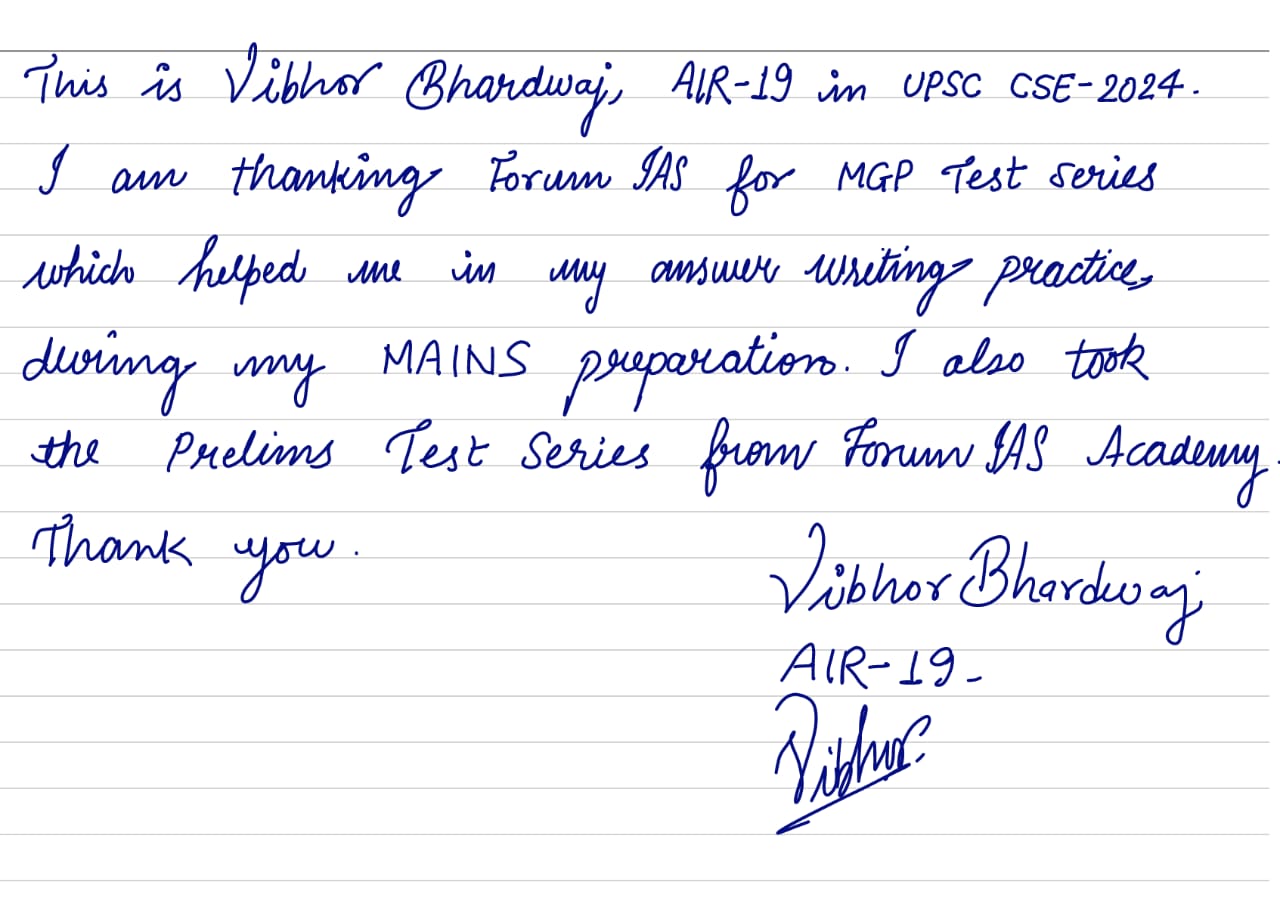 This is Vibhor Bhardwaj, AIR-19 in UPSC CSE-2024.
I am thanking Forum IAS for MGP Test series
which helped me in my answer writing practice,
during my MAINS preparation. I also took
the Prelims Test Series from Forum IAS Academy.
Thank you.
Vibhor Bhardwaj,
AIR-19-
Vibhor.